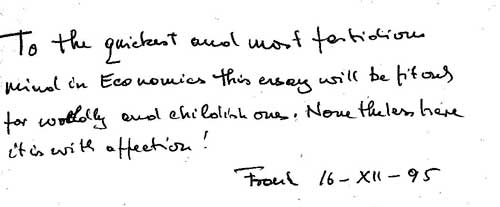 To the quickest and most fastidious
mind in Economics this essay will be fit only
for worldly and childish ones. Nonetheless here
it is with affection!
16-XII-95